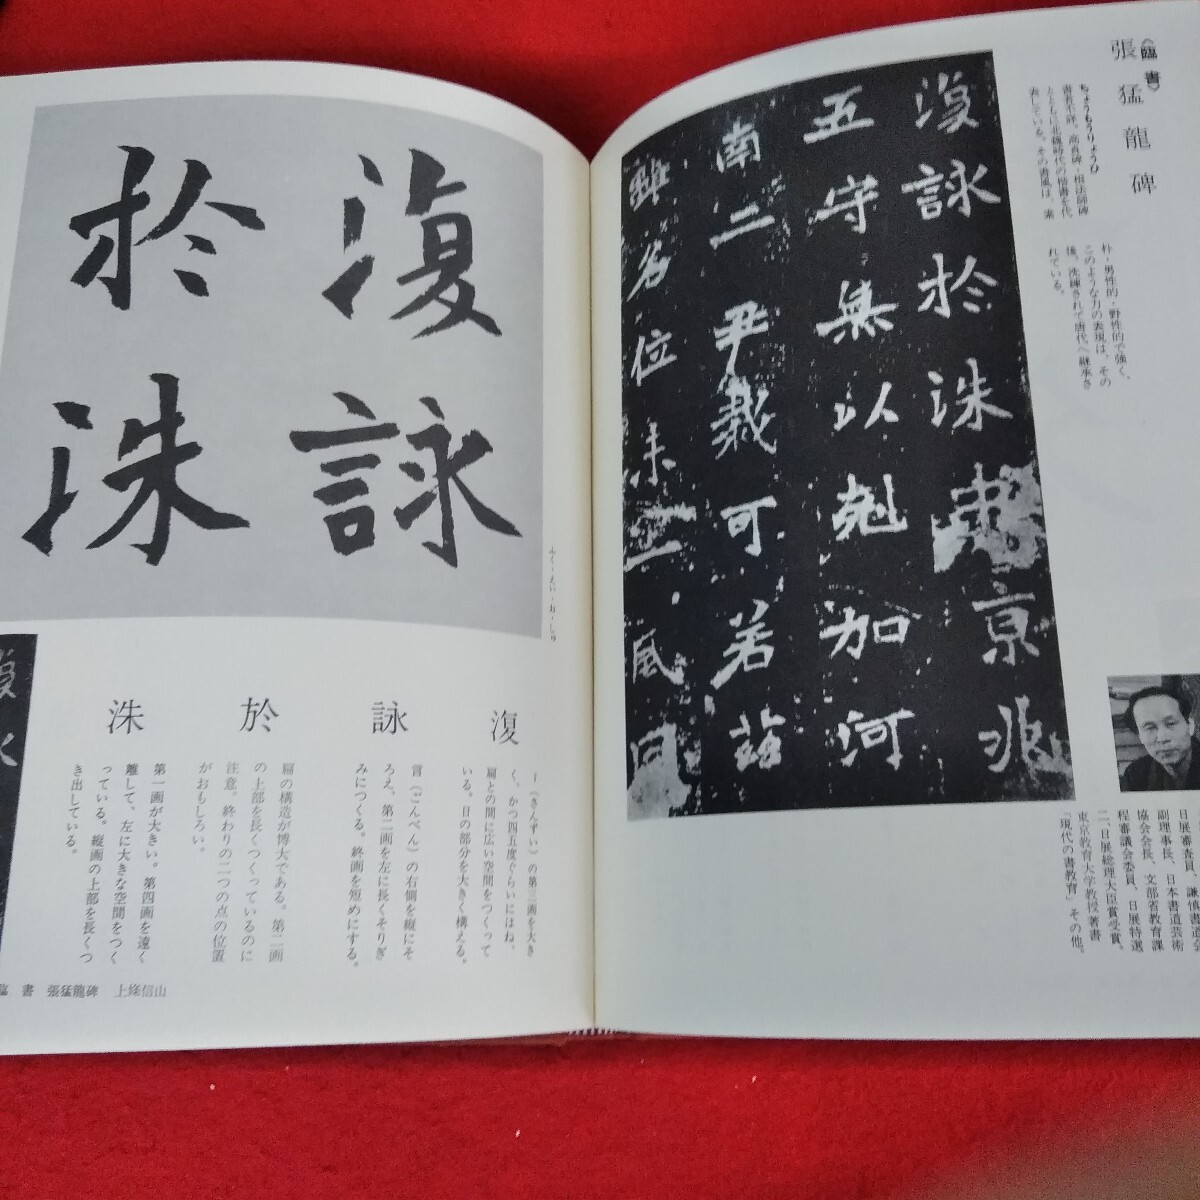 〈臨書〉
張猛龍碑
ちょうもうりょうひ
書者不詳。高貞碑・根法師碑
とともに北魏時代の楷書を代
表している。その書風は、素
朴・男性的・野性的で強く、
このような力の表現は、その
後、洗練されて唐代へ継承さ
れている。
復詠於洙
京兆
五守無以剋加河
南二尹裁可若茲
雖名位未一風
日展審査員、謙慎書道会
副理事長、日本書道芸術
協会会長、文部省教育課
程審議会委員、日展特選
二、日展総理大臣賞受賞。
東京教育大学教授 著書
「現代の書教育」その他。
復詠
於洙
ふく・えい・お・しゅ
復
氵(さんずい)の第三画を大き
く、かつ四五度ぐらいにはね、
扁との間に広い空間をつくって
いる。日の部分を大きく構える。
詠
言(ごんべん)の右側を縦にそ
ろえ、第二画を左に長くそりぎ
みにつくる。終画を短めにする。
於
扁の構造が博大である。第二画
の上部を長くつくっているのに
注意。終わりの二つの点の位置
がおもしろい。
洙
第一画が大きい。第四画を遠く
離して、左に大きな空間をつく
っている。縦画の上部を長くつ
き出している。
臨 書 張猛龍碑 上條信山